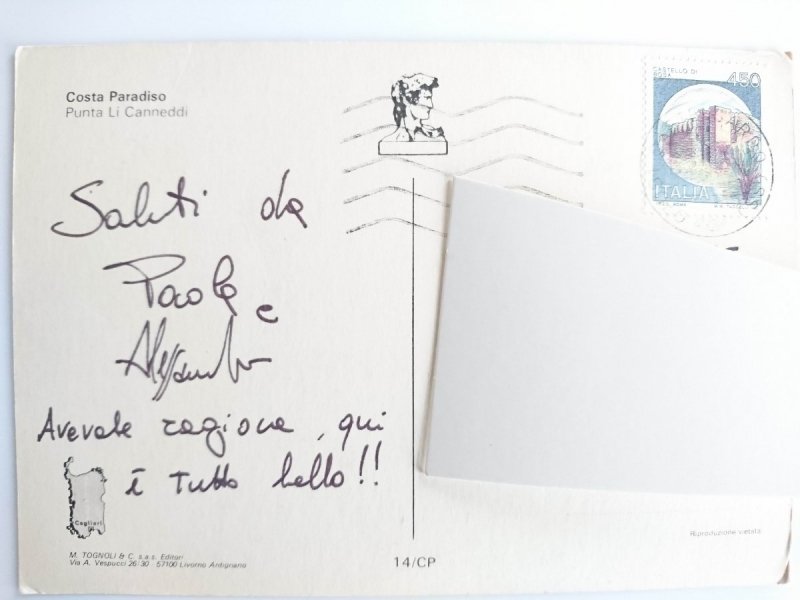 Costa Paradiso
Punta Li Canneddi
CASTELLO DI
BOSA
450
ITALIA
Saluti da
Paola e
Alessandro
Avevate ragione, qui
è tutto bello!!
Cagliari
Riproduzione vietata
M. TOGNOLI & C. s.a.s. Editori
Via A. Vespucci 26/30 57100 Livorno Antignano
14/CP